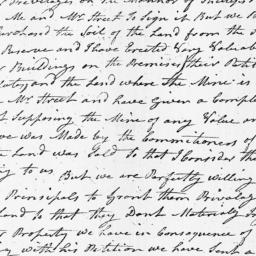 Me and Mr Street To Sign it But we
Purchased the Soil of the Land from the
Reserve and I have Erected Very Valuab
Buildings on the Premises their Petit
and the Land where the Mine is
Mr Street and have Given a Comple
Supposing the Mine of any Value
we was Made by the Commitioners of
Land was Sold to that I Consider th
ing to us But we are Perfectly willing
Prinsipals to Grant them Privelag
Land so that they Dont Materially
Property we have in Consequence of
with his Petition we have Sent a